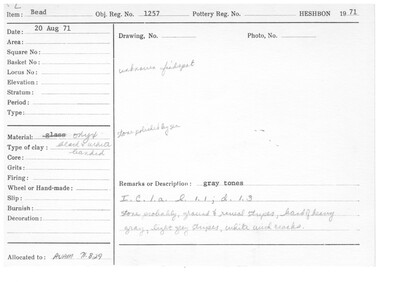 Item: Bead Obj. Reg. No. 1257 Pottery Reg. No. HESHBON 1971
Date: 20 Aug 71
Area:
Square No:
Basket No:
Locus No:
Elevation:
Stratum:
Period:
Type:
Drawing, No. Photo, No.
unknown findspot
Material: glass onyx
Type of clay: black & white
banded
Core:
Grits:
Firing:
Wheel or Hand-made:
Slip:
Burnish:
Decoration:
Allocated to:
Remarks or Description: gray tones
I.C.1.a l 1.1, d. 1.3
probably, stripes, band of heavy
gray, light gray stripes, white and